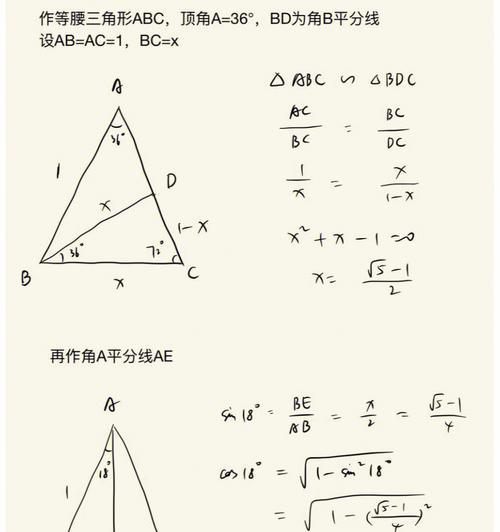 作等腰三角形ABC，顶角A=36°，BD为角B平分线
设AB=AC=1，BC=x
A
36°
1
D
x
1-x
36°
72°
B
x
C
△ABC ∽ △BDC
AC/BC = BC/DC
1/x = x/(1-x)
x² + x - 1 = 0
x = (√5-1)/2
再作角A平分线AE
A
18°
1
sin18° = BE/AB = x/2 = (√5-1)/4
cos18° = √(1-sin²18°)
= √(1-((√5-1)/4)²)